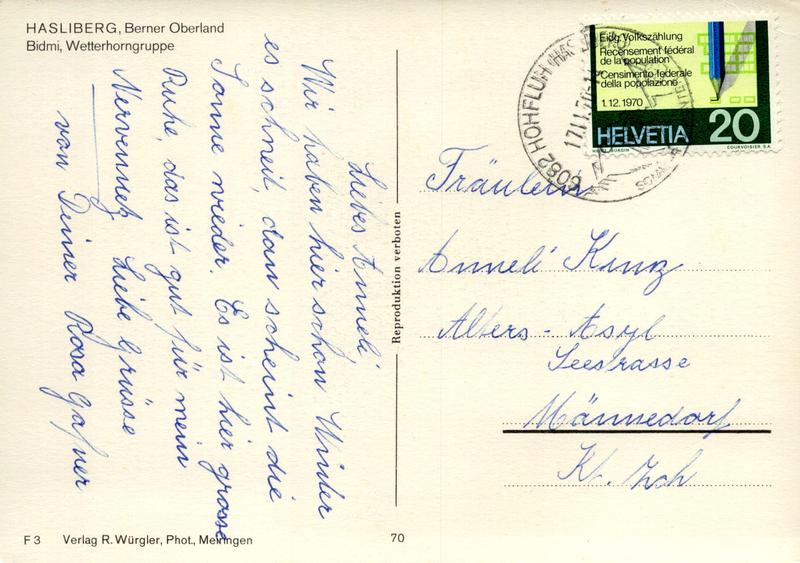 HASLIBERG, Berner Oberland
Bidmi, Wetterhorngruppe
Liebes Anneli
Wir haben hier schon Winter
es schneit, dan scheint die
Sonne wieder. Es ist hier grosse
Ruhe, das ist gut für mein
Nervennetz Liebe Grüsse
von Deiner Rosa Gafner
F 3 Verlag R. Würgler, Phot., Meiringen
70
Reproduktion verboten
6082 HOHFLUH (HASLIBERG)
17.11.
Eidg. Volkszählung
Recensement fédéral
de la population
Censimento federale
della popolazione
1.12.1970
HELVETIA 20
COURVOISIER S.A.
Fräulein
Anneli Kunz
Alters-Asyl
Seestrasse
Männedorf
Kt. Zch